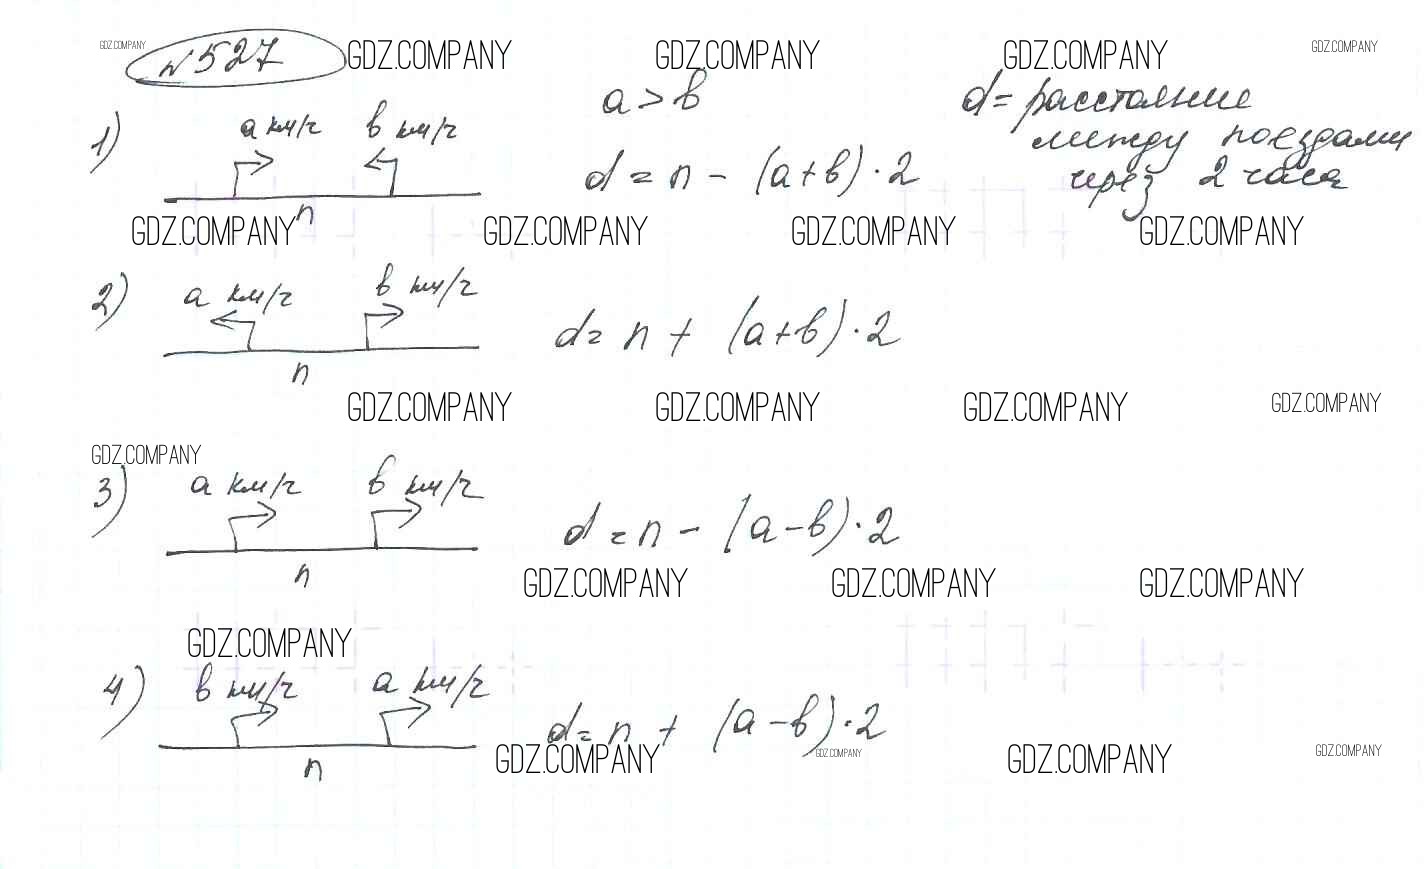 GDZ.COMPANY
№ 527 GDZ.COMPANY GDZ.COMPANY GDZ.COMPANY GDZ.COMPANY
1) a км/ч b км/ч
n
a > b
d = n - (a+b) · 2
d = расстояние
между поездами
через 2 часа
GDZ.COMPANY GDZ.COMPANY GDZ.COMPANY GDZ.COMPANY
2) a км/ч b км/ч
n
d = n + (a+b) · 2
GDZ.COMPANY GDZ.COMPANY GDZ.COMPANY GDZ.COMPANY
GDZ.COMPANY
3) a км/ч b км/ч
n
d = n - (a-b) · 2
GDZ.COMPANY GDZ.COMPANY GDZ.COMPANY
GDZ.COMPANY
4) b км/ч a км/ч
n
d = n + (a-b) · 2
GDZ.COMPANY GDZ.COMPANY GDZ.COMPANY GDZ.COMPANY